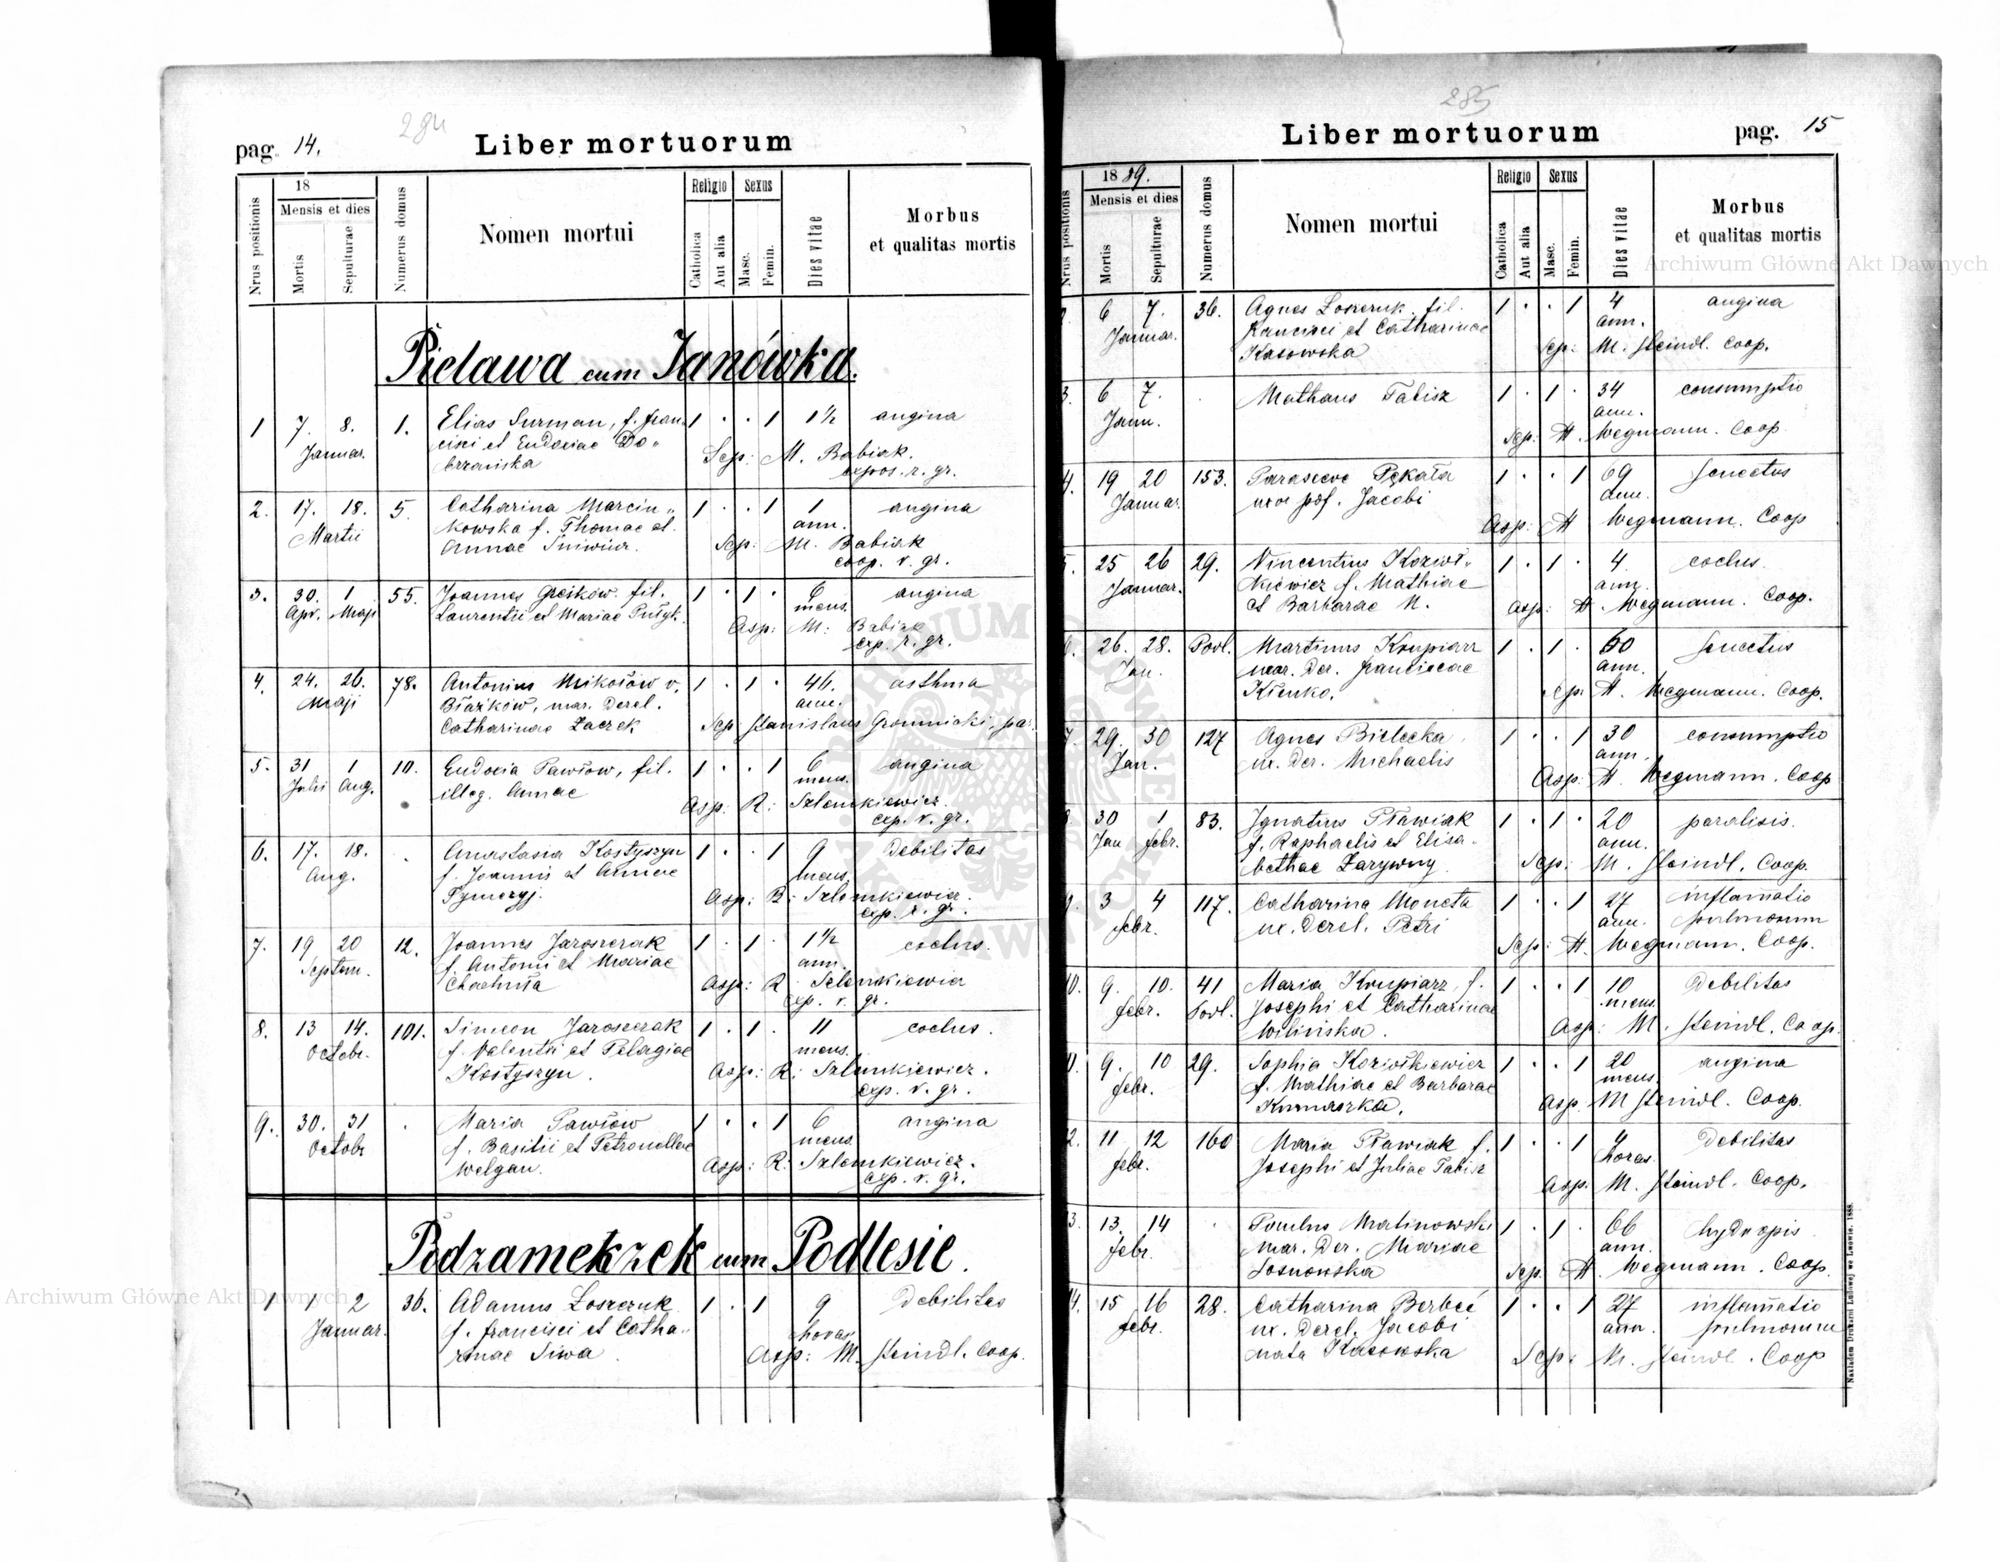 284
pag. 14.
Liber mortuorum
Nrus positionis
18
Mensis et dies
Mortis
Sepulturae
Numerus domus
Nomen mortui
Religio
Catholica
Aut alia
Sexus
Masc.
Femin.
Dies vitae
Morbus
et qualitas mortis
Pielawa cum Janówka.
1 7. 8. 1. Elias Surman, f. Fran- 1 . . 1 1½ angina
Januar. cisci et Eudociae Do-
brzańska Sep: M. Babiak.
expos. r. gr.
2. 17. 18. 5. Catharina Marcin- 1 . . 1 1 angina
Martii kowska f. Thomae et ann.
Annae Sep: M. Babiak
coop. r. gr.
3. 30. 1 55. Joannes fil. 1 . 1 . 6 angina
Apr. Maji Laurentii et Mariae mens.
Asp: M: Babiak
exp. r. gr.
4. 24. 26. 78. Antonius Mikołów v. 1 . 1 . 46. asthma
Maji Błażków, mar. derel. ann.
Catharinae Zaczek Sep Stanislaus Gromnicki, pa.
5. 31 1 10. Eudocia Pawłow, fil. 1 . . 1 6 angina
Julii Aug. illeg. Annae mens.
Asp: R: Szlemkiewicz.
exp. r. gr.
6. 17. 18. . Anastasia Kostyszyn 1 . . 1 9 debilitas
Aug. f. Joannis et Annae mens.
Tymczyj. Asp: R: Szlemkiewicz.
exp. r. gr.
7. 19 20 12. Joannes Jaroszczak 1 . 1 . 1½ coclus.
Septem. f. Antonii et Mariae ann.
Chachuła Asp: R Szlemkiewicz
exp. r. gr.
8. 13 14. 101. Simeon Jaroszczak 1 . 1 . 11 coclus.
Octobr. f. Valentii et Pelagiae mens.
Kostyszyn. Asp: R: Szlemkiewicz.
exp. r. gr.
9. 30. 31 . Maria Pawłów 1 . . 1 6 angina
Octobr f. Basilii et Petronellae mens
Welgan. Asp: R: Szlemkiewicz.
exp. r. gr.
Podzameczek cum Podlesie.
1 1 2 36. Adamus Łoszczuk 1 . 1 9 debilitas
Januar. f. Francisci et Catha- horas
rinae Siwa. Asp: M. Steindl. Coop.
285
Liber mortuorum
pag. 15
Nrus positionis
1889.
Mensis et dies
Mortis
Sepulturae
Numerus domus
Nomen mortui
Religio
Catholica
Aut alia
Sexus
Masc.
Femin.
Dies vitae
Morbus
et qualitas mortis
2. 6 7. 36. Agnes Łoszczuk. fil. 1 . . 1 4 angina
Januar. Francisci et Catharinae ann.
Kasowska Sep: M. Steindl. Coop.
3. 6 7. . Mathaus Tabisz 1 . 1 . 34 consumptio
Jann. ann.
Sep: A. Wegmann. Coop
4. 19 20 153. Parasceve Pękała 1 . . 1 69 senectus
Januar. uxor pof. Jacobi ann.
Asp: A Wegmann. Coop
5. 25 26 29. Vincentius Koziół- 1 . 1 . 4. coclus.
Januar. kiewicz f. Mathiae ann.
et Barbarae N. Asp: A. Wegmann. Coop.
6. 26. 28. Podl. Martinus Krupiarz 1 . 1 . 60 senectus
Jan. mar. der. Franciscae ann.
Klenko. Sep: A. Wegmann. Coop.
7. 29. 30 127 Agnes Bielecka 1 . . 1 30 consumptio
Jan. ux. der. Michaelis ann.
Asp: A. Wegmann. Coop
8. 30 1 83. Ignatius Pławiak 1 . 1 . 20 paralisis.
Jan febr. f. Raphaelis et Elisa- ann.
bethae Zarywny. Sep: M. Steindl. Coop.
9. 3 4 117. Catharina Moneta 1 . . 1 27 inflamatio
febr. ux. derel. Petri ann. pulmonum
Sep: A. Wegmann. Coop.
10. 9. 10. 41 Maria Krupiarz, f. 1 . . 1 10 debilitas
febr. Podl. Josephi et Catharinae mens.
Wilińska. Asp: M. Steindl. Coop.
11. 9. 10 29. Sophia Koziołkiewicz 1 . . 1 20 angina
febr. f. Mathiae et Barbarae mens.
Kumaszka. Asp. M Steindl. Coop.
12. 11 12 160 Maria Pławiak f. 1 . . 1 4 debilitas
febr. Josephi et Juliae Tabisz horas.
Asp. M. Steindl. Coop.
13. 13. 14 . Paulus Malinowski 1 . 1 . 66 hydropis
febr. mar. der. Mariae ann.
Sosnowska Sep. A. Wegmann. Coop.
14. 15 16 28. Catharina Berbeć 1 . . 1 27 inflamatio
febr. ux. derel. Jacobi ann. pulmonum
nata Kasowska Sep: M. Steindl. Coop
Nakładem Drukarni Ludowej we Lwowie. 1888.
Archiwum Główne Akt Dawnych
Archiwum Główne Akt Dawnych
ARCHIWUM GŁÓWNE AKT DAWNYCH